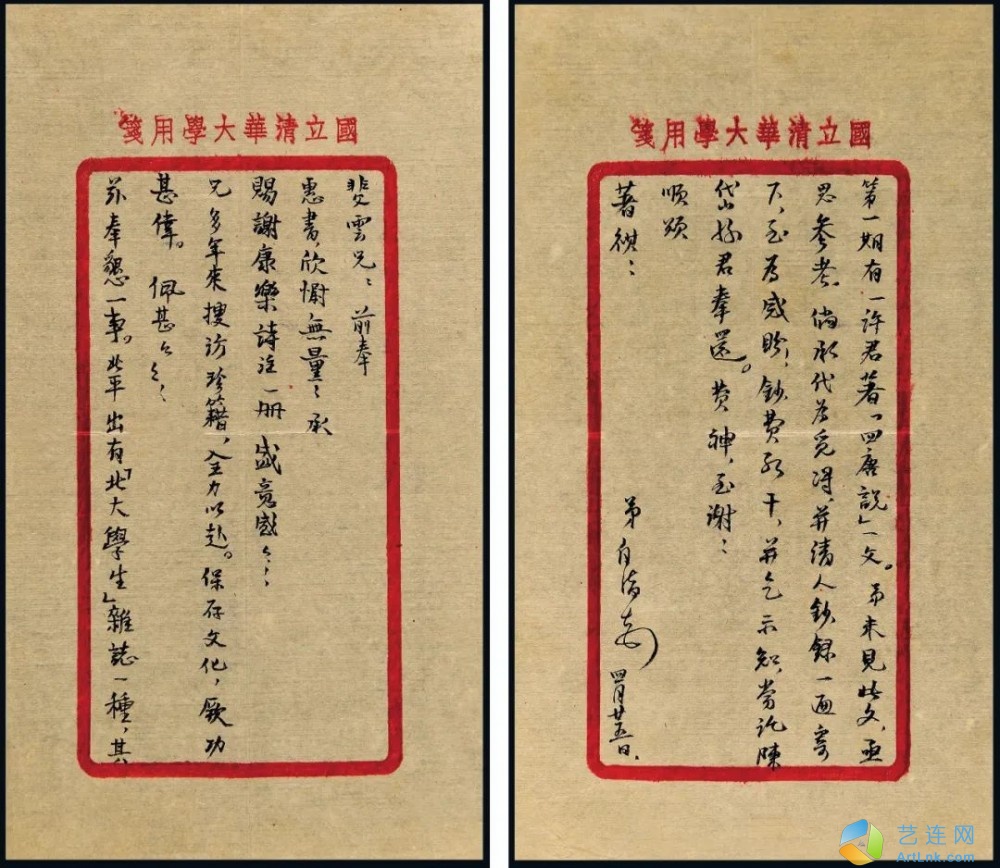 國立清華大學用箋
斐雲兄：前奉
惠書，欣慰無量；承
賜謝康樂詩注一册，感荷感荷；
兄多年來搜訪珍籍，全力以赴。保存文化，厥功
甚偉。佩甚佩甚；
茲奉懇一事。北平出有「北大學生」雜誌一種，其
國立清華大學用箋
第一期有一許君著「四唐說」一文。弟未見此文，亟
思參考。倘承代為覓得，并請人鈔錄一通寄
下，至為感盼，鈔費若干，并乞示知，當託陳
岱孫君奉還。費神，至謝：
順頌
著祺：
弟自清
四月廿五日、
艺连网
ArtLnk.com